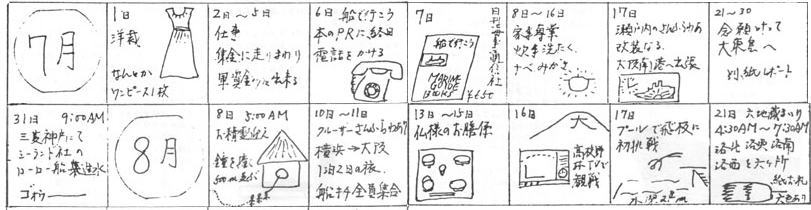 7月
1日
洋裁
なんとか
ワンピース1枚
2日〜5日
仕事
集金に走りまわり
軍資金
出来る
6日 船で行こう
本のPRに終日
電話をかける
7日
日刊海事通信社
船で行こう
MARINE
GUIDE
BOOKS
¥650
8日〜16日
家事専業
炊事洗たく
なべみがき
17日
瀬戸内のさんふらわあ
改装なる
大阪南港へ出張
21〜30
会願かけて
大東島へ
別紙レポート
31日 9:00AM
三菱神戸にて
シーランド社の
ローロー船 進水
ゴォーー
8月
8日 5:00AM
お精霊迎え
鐘を撞く
500m並ぶ
10日〜11日
クルーザーさんふらわあ
横浜→大阪
1泊2日の旅、
船キチ全員集合
13日〜15日
仏様のお膳係
16日
大
高校野球TVで
観戦
17日
プールで飛板に
初挑戦
水深2m
21日 六地蔵まいり
4:30AM〜7:30AM
洛北 洛東 洛南
洛西 を
紙お札
六色あり